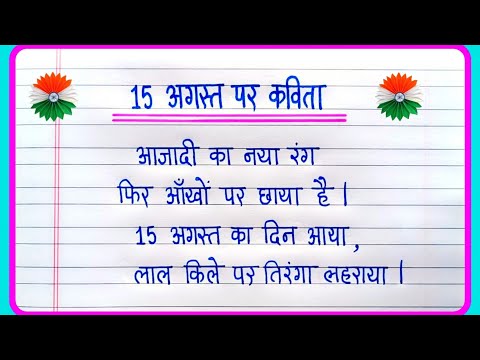 15 अगस्त पर कविता
आजादी का नया रंग
फिर आँखों पर छाया है ।
15 अगस्त का दिन आया ,
लाल किले पर तिरंगा लहराया ।